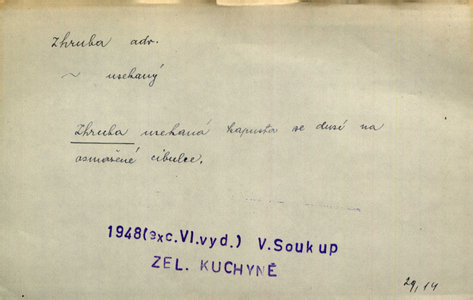 zhruba adv.
~ usekaný
Zhruba usekaná kapusta se dusí na
osmažené cibulce.
1948(exc.VI.vyd.) V.Soukup
ZEL. KUCHYNĚ
29,14